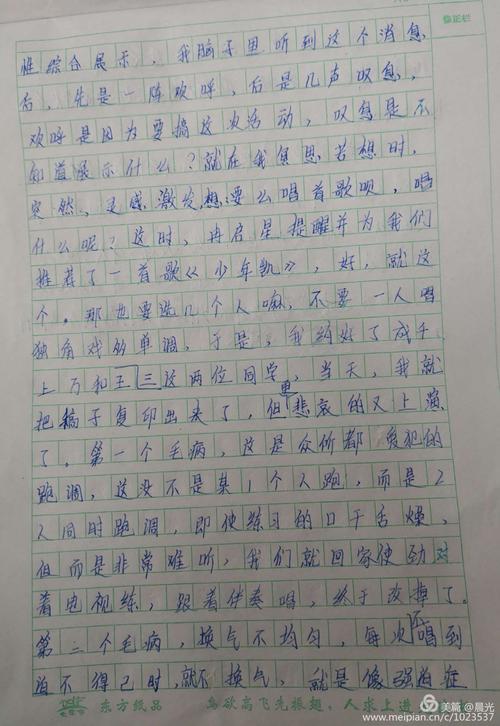 修正栏
性综合展示，我脑子里听到这个消息
后，先是一阵欢呼，后是几声叹息，
欢呼是因为要搞这次活动，叹息是不
知道展示什么？就在我冥思苦想时，
突然，灵感激发，想：要么唱首歌呗，唱
什么呢？这时，冉启星提醒并为我们
推荐了一首歌《少年凯》，好，就这
个。那也要选几个人嘛，不要一人唱
独角戏多单调，于是，我约好了成千
上万和王三这两位同学，当天，我就
把稿子复印出来了，但更悲哀的又上演
了。第一个毛病，这是众所都爱犯的
跑调，这没不是某1个人跑，而是2
人同时跑调，即使练习的口干舌燥，
但而是非常难听，我们就回家使劲对
着电视练，跟着伴奏唱，终于改掉了。
第二个毛病，换气不均匀，每次唱到
迫不得已时，就不换气，就是像强迫症
东方纸品 鸟欲高飞先振翅，人求上进
美篇 @晨光
www.meipian.cn/c/1023537